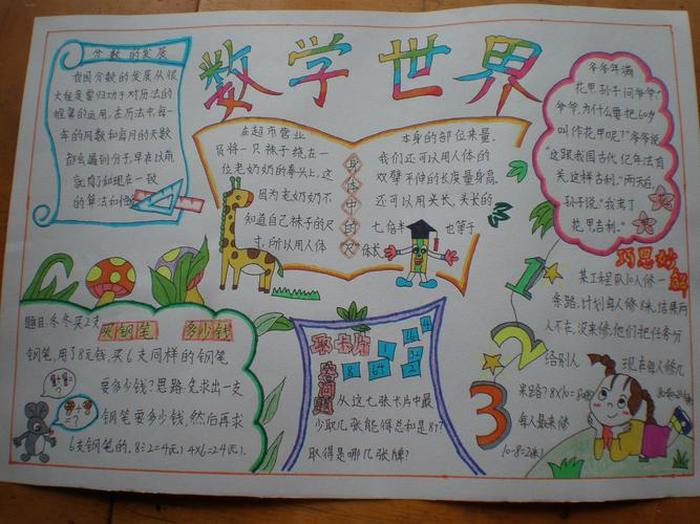 数学世界
分数的发展
我国分数的发展从很
大程度要归功于对历法的
推算的运用,在历法中,每
年的月数和每月的天数
都会遇到分子,早在以前
就有了和现在一致
的算法和
在超市营业
员将一只袜子绕在一
位老奶奶的拳头上,这
因为老奶奶不
知道自己袜子的尺
寸,所以用人体
身体中的"尺"
本身的部位来量。
我们还可以用人体的
双臂平伸的长度量身高,
还可以用头长,头长的
七倍半 也等于
身长
爷爷年满
花甲,孙子问爷爷:"
爷爷,为什么要把60岁
叫作花甲呢?"爷爷说:
"这跟我国古代亿年法有
关,这样吉利。"两天后,
孙子说:"我考了
花甲吉利。"
题目:冬冬买2支
买钢笔 多少钱
钢笔,用了8元钱,买6支同样的钢笔
要多少钱?思路:先求出一支
钢笔要多少钱,然后再求
6支钢笔的。8÷2=4(元) 4×6=24(元)
取卡片
8 64
从这七张卡片中最
少取几张能得总和是87?
取得是哪几张牌?
巧思妙解
1
2
3
某工程队10人修一
条路,计划每人修8米,结果两
人不在,没来修,他们把任务分
给别人 现在每人修几
米路? 8×10=80
每人最来修
10-8=2(米)